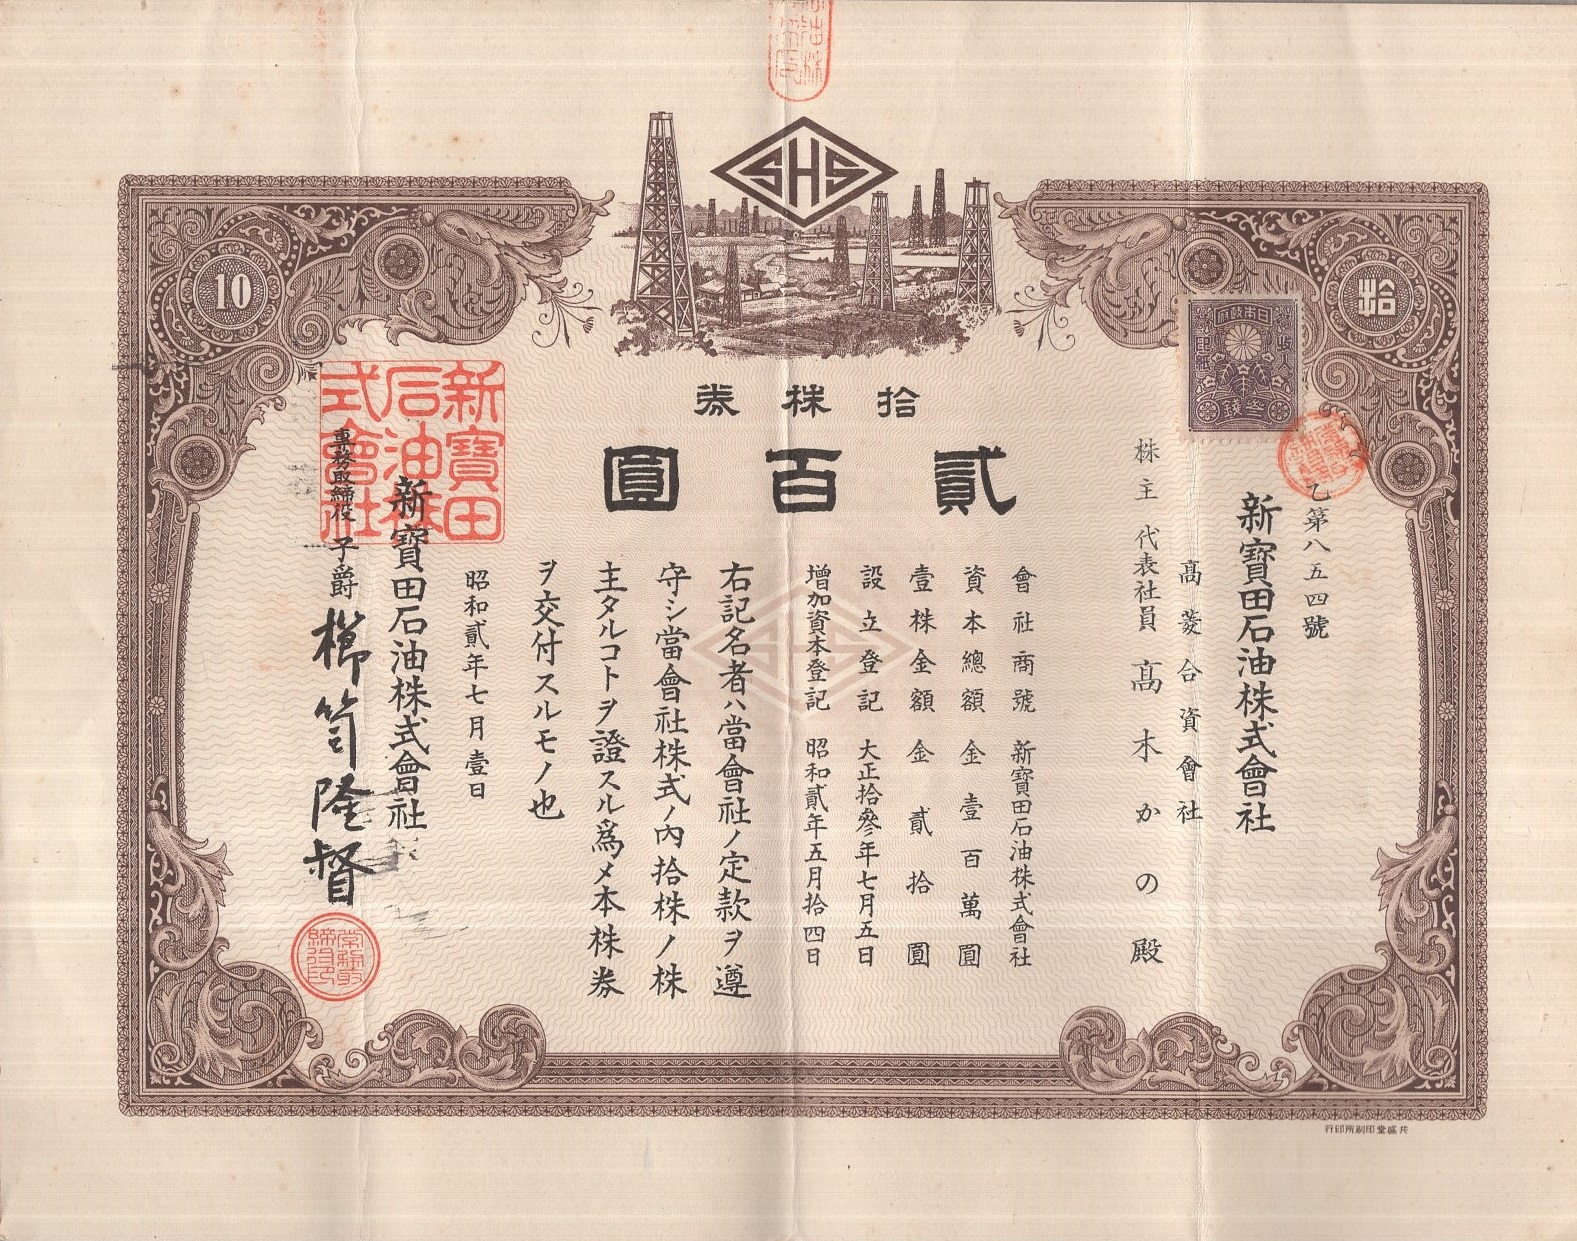 SHS
10
拾
拾株券
貳百圓
日本政府
收入
印紙
参錢
乙第八五四號
新寶田石油株式會社
髙菱合資會社
株主 代表社員 髙木かの殿
會社商號 新寶田石油株式會社
資本總額 金壹百萬圓
壹株金額 金貳拾圓
設立登記 大正拾參年七月五日
增加資本登記 昭和貳年五月拾四日
右記名者ハ當會社ノ定款ヲ遵
守シ當會社株式ノ內拾株ノ株
主タルコトヲ證スル爲メ本株券
ヲ交付スルモノ也
昭和貳年七月壹日
新寶田石油株式會社
專務取締役 子爵 櫛笥隆督
新寶田
石油株
式會社
共盛堂印刷所印行